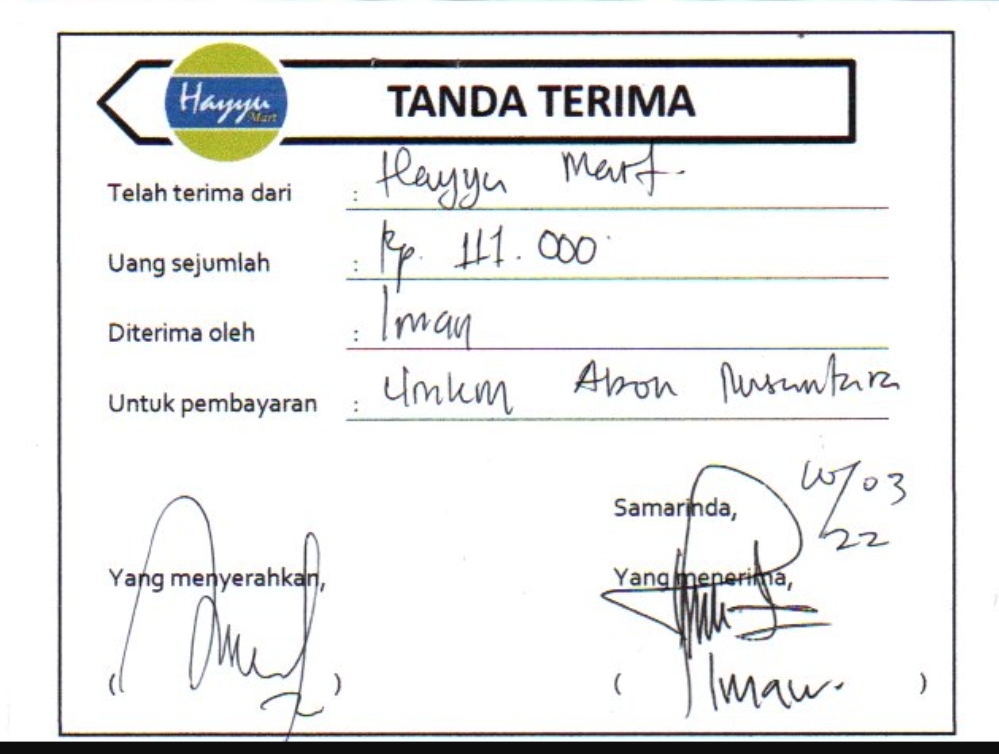 Hayyu Mart
TANDA TERIMA
Telah terima dari : Hayyu Mart.
Uang sejumlah : Rp. 111.000
Diterima oleh : Iman
Untuk pembayaran : Umkm Abon Nusantara
Samarinda, /03
22
Yang menyerahkan, Yang menerima,
( ) ( Iman. )